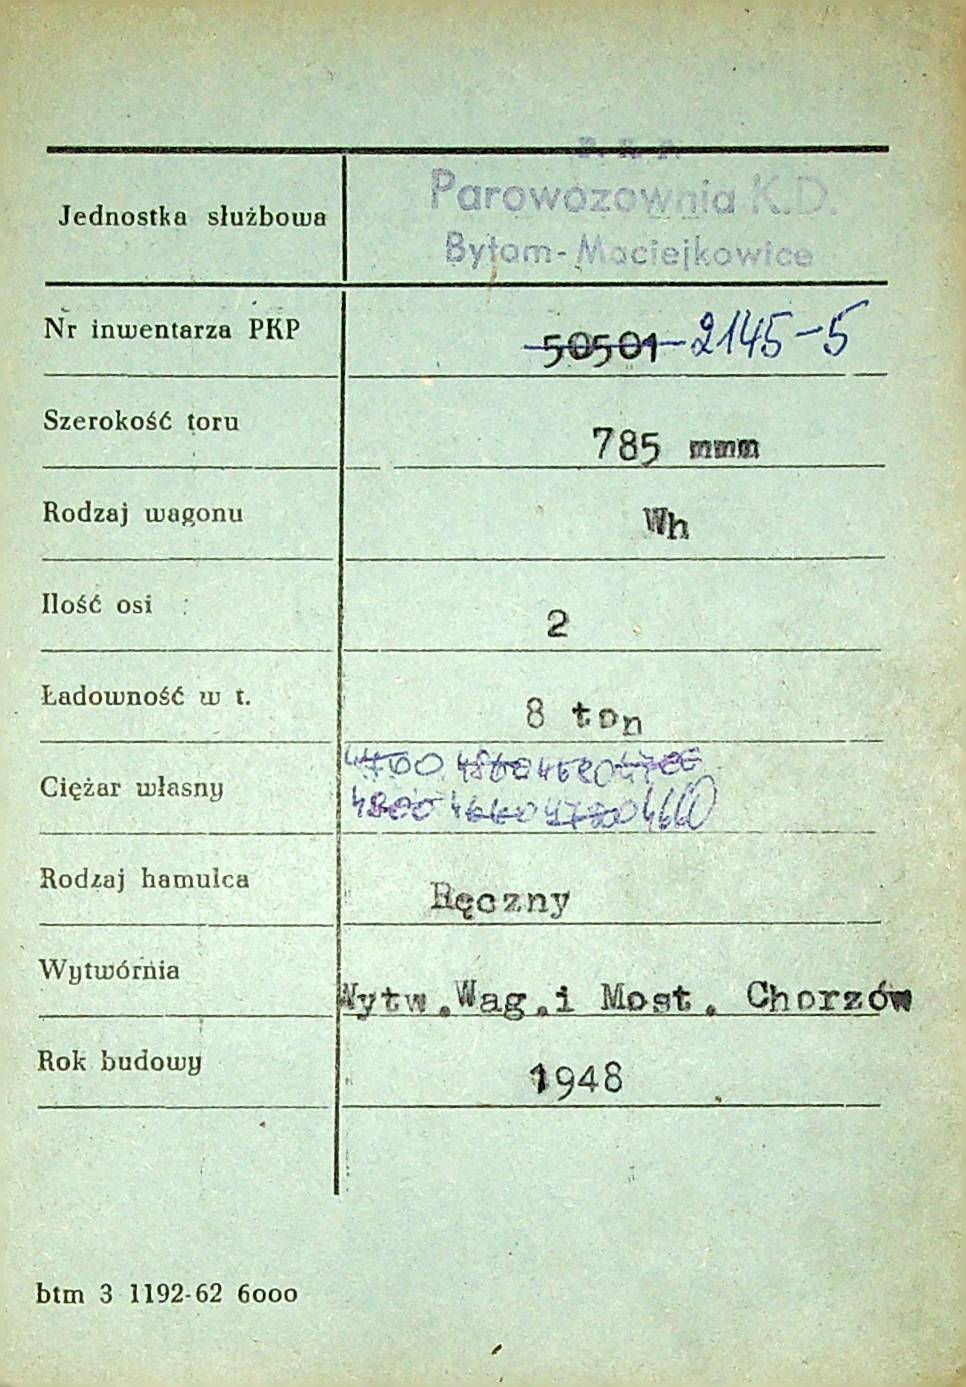 P. K. P.
Parowozownia K.D.
Bytom-Maciejkowice
Jednostka służbowa
Nr inwentarza PKP 50501 2145-5
Szerokość toru 785 mmm
Rodzaj wagonu Wh
Ilość osi 2
Ładowność w t. 8 ton
4700 4860 4680 4700
Ciężar własny
4800 4660 4780 4660
Rodzaj hamulca Ręczny
Wytwórnia Wytw.Wag.i Most. Chorzów
Rok budowy 1948
btm 3 1192-62 6000